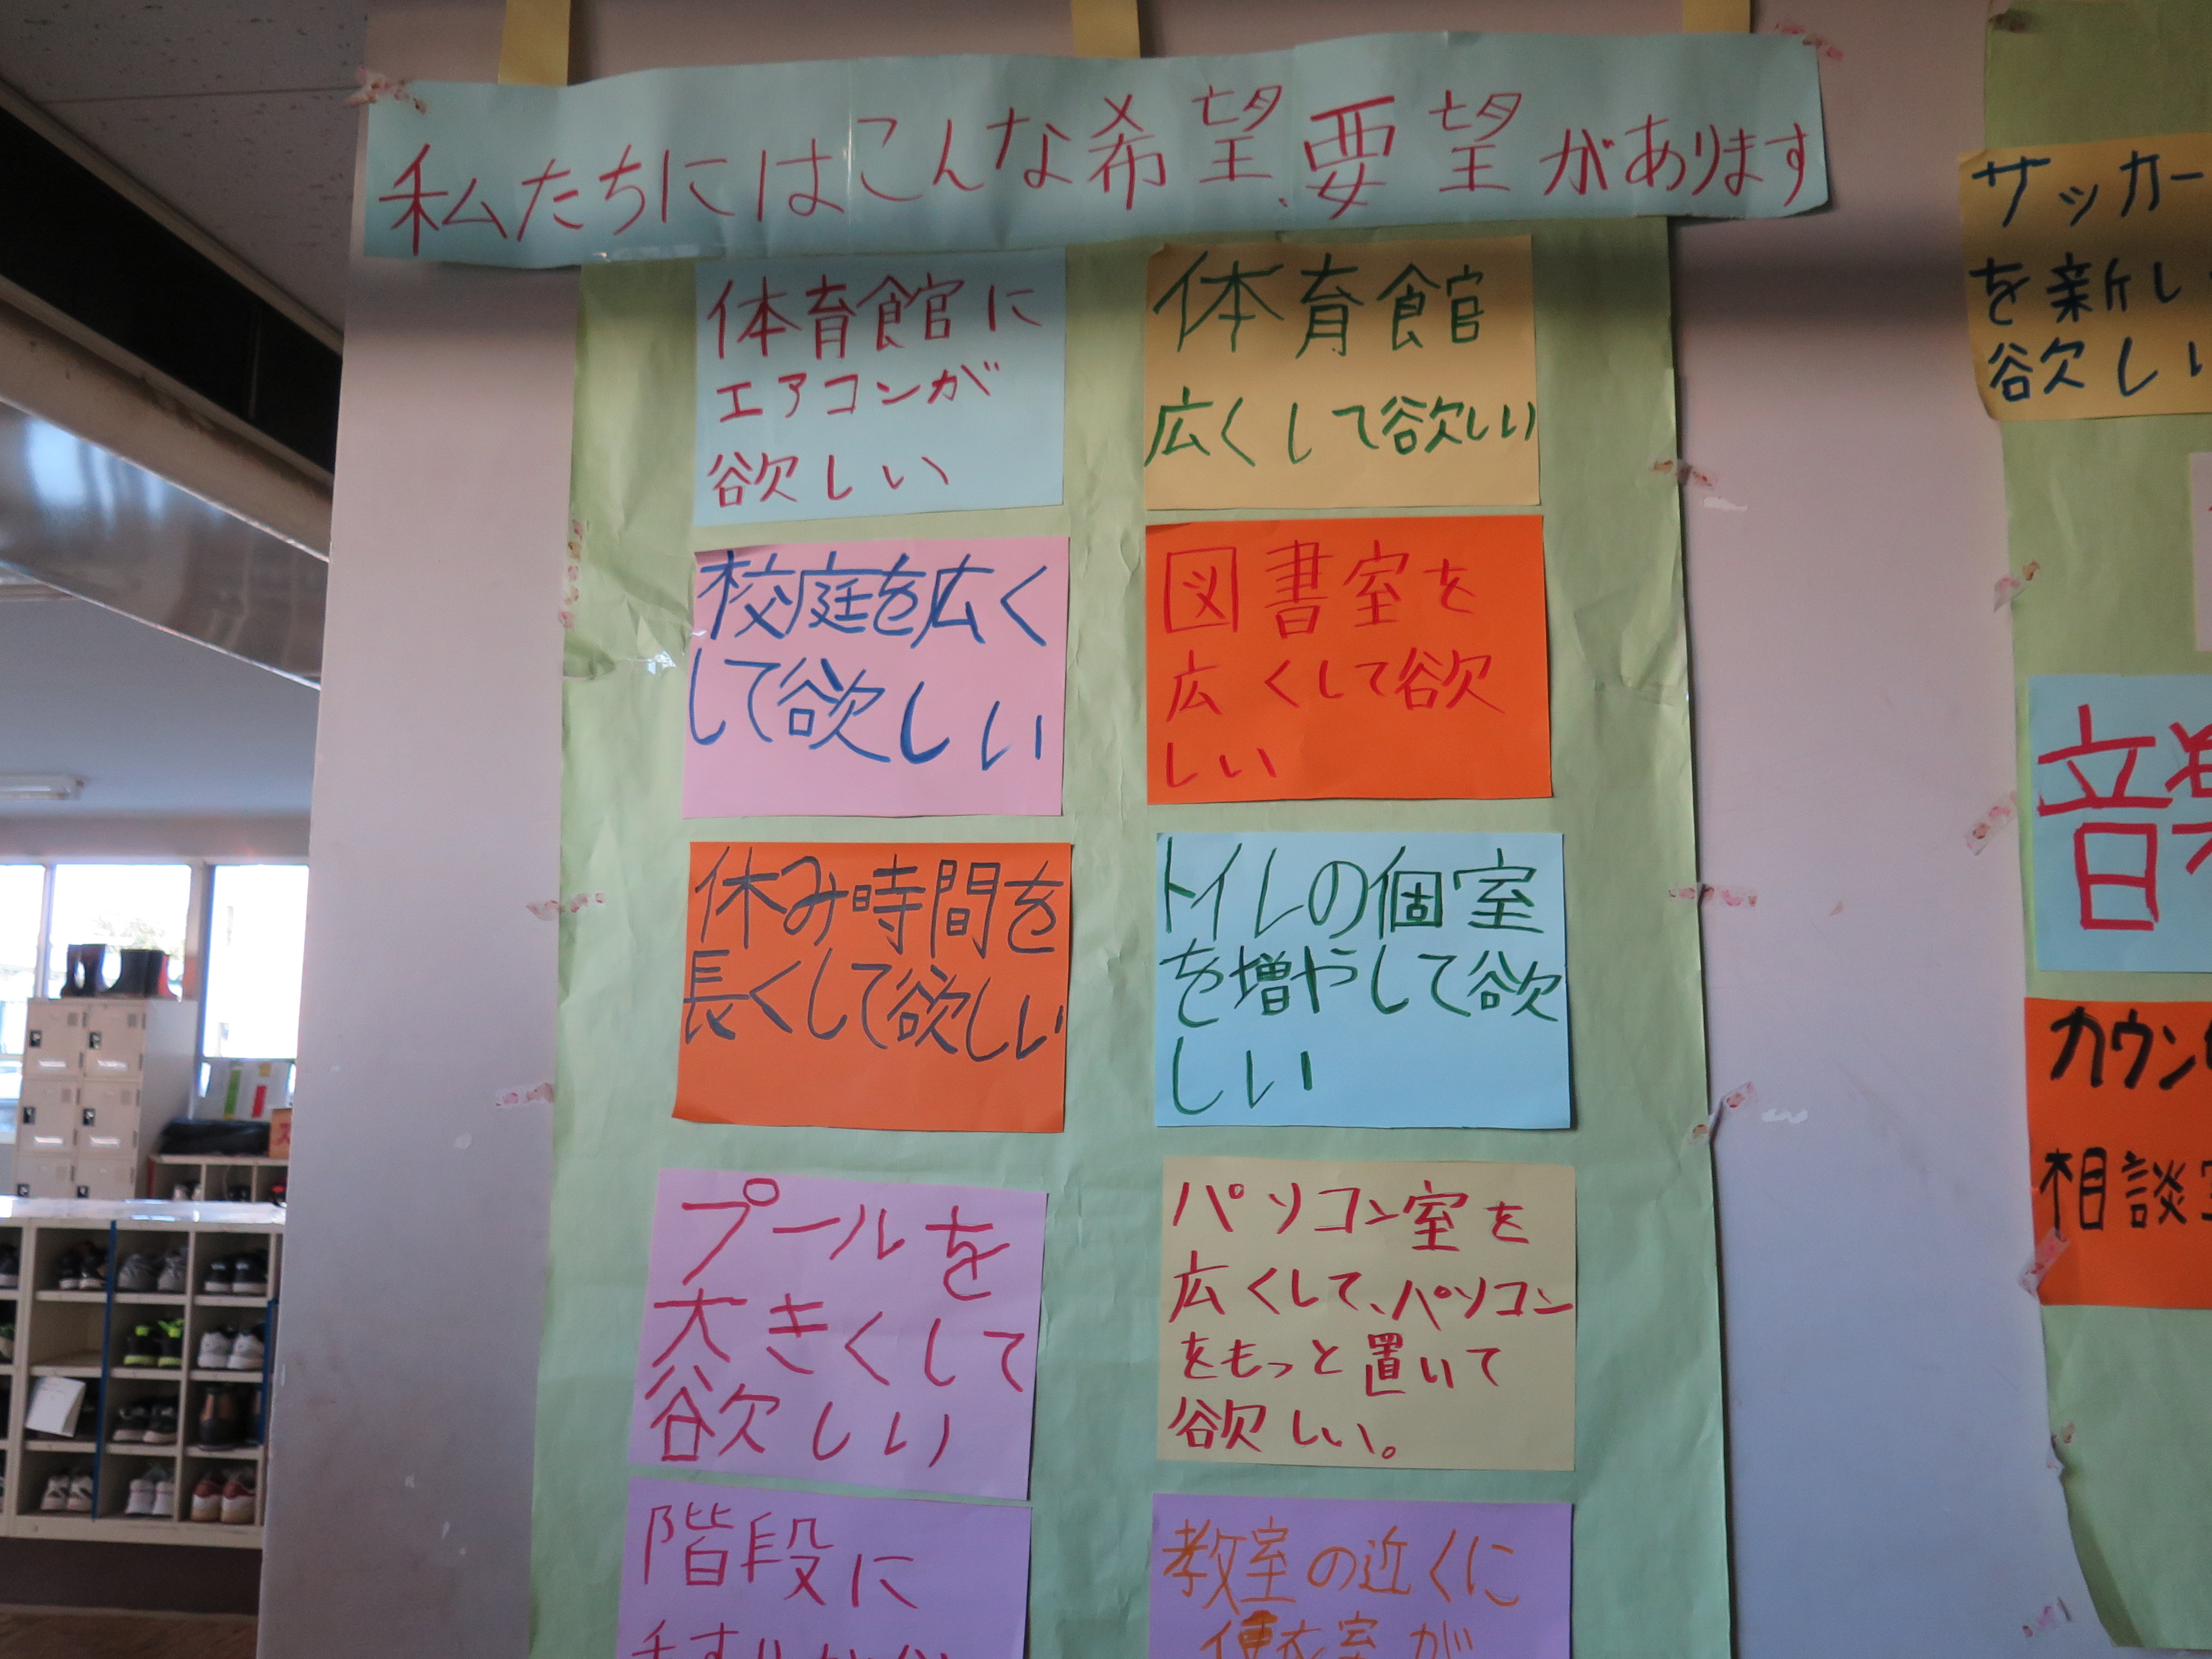 私たちにはこんな希望、要望があります
体育館に
エアコンが
欲しい
体育館
広くして欲しい
校庭を広く
して欲しい
図書室を
広くして欲
しい
休み時間を
長くして欲しい
トイレの個室
を増やして欲
しい
プールを
大きくして
欲しい
パソコン室を
広くして、パソコン
をもっと置いて
欲しい。
階段に
教室の近くに
サッカー
を新し
欲しい
音
カウン
相談